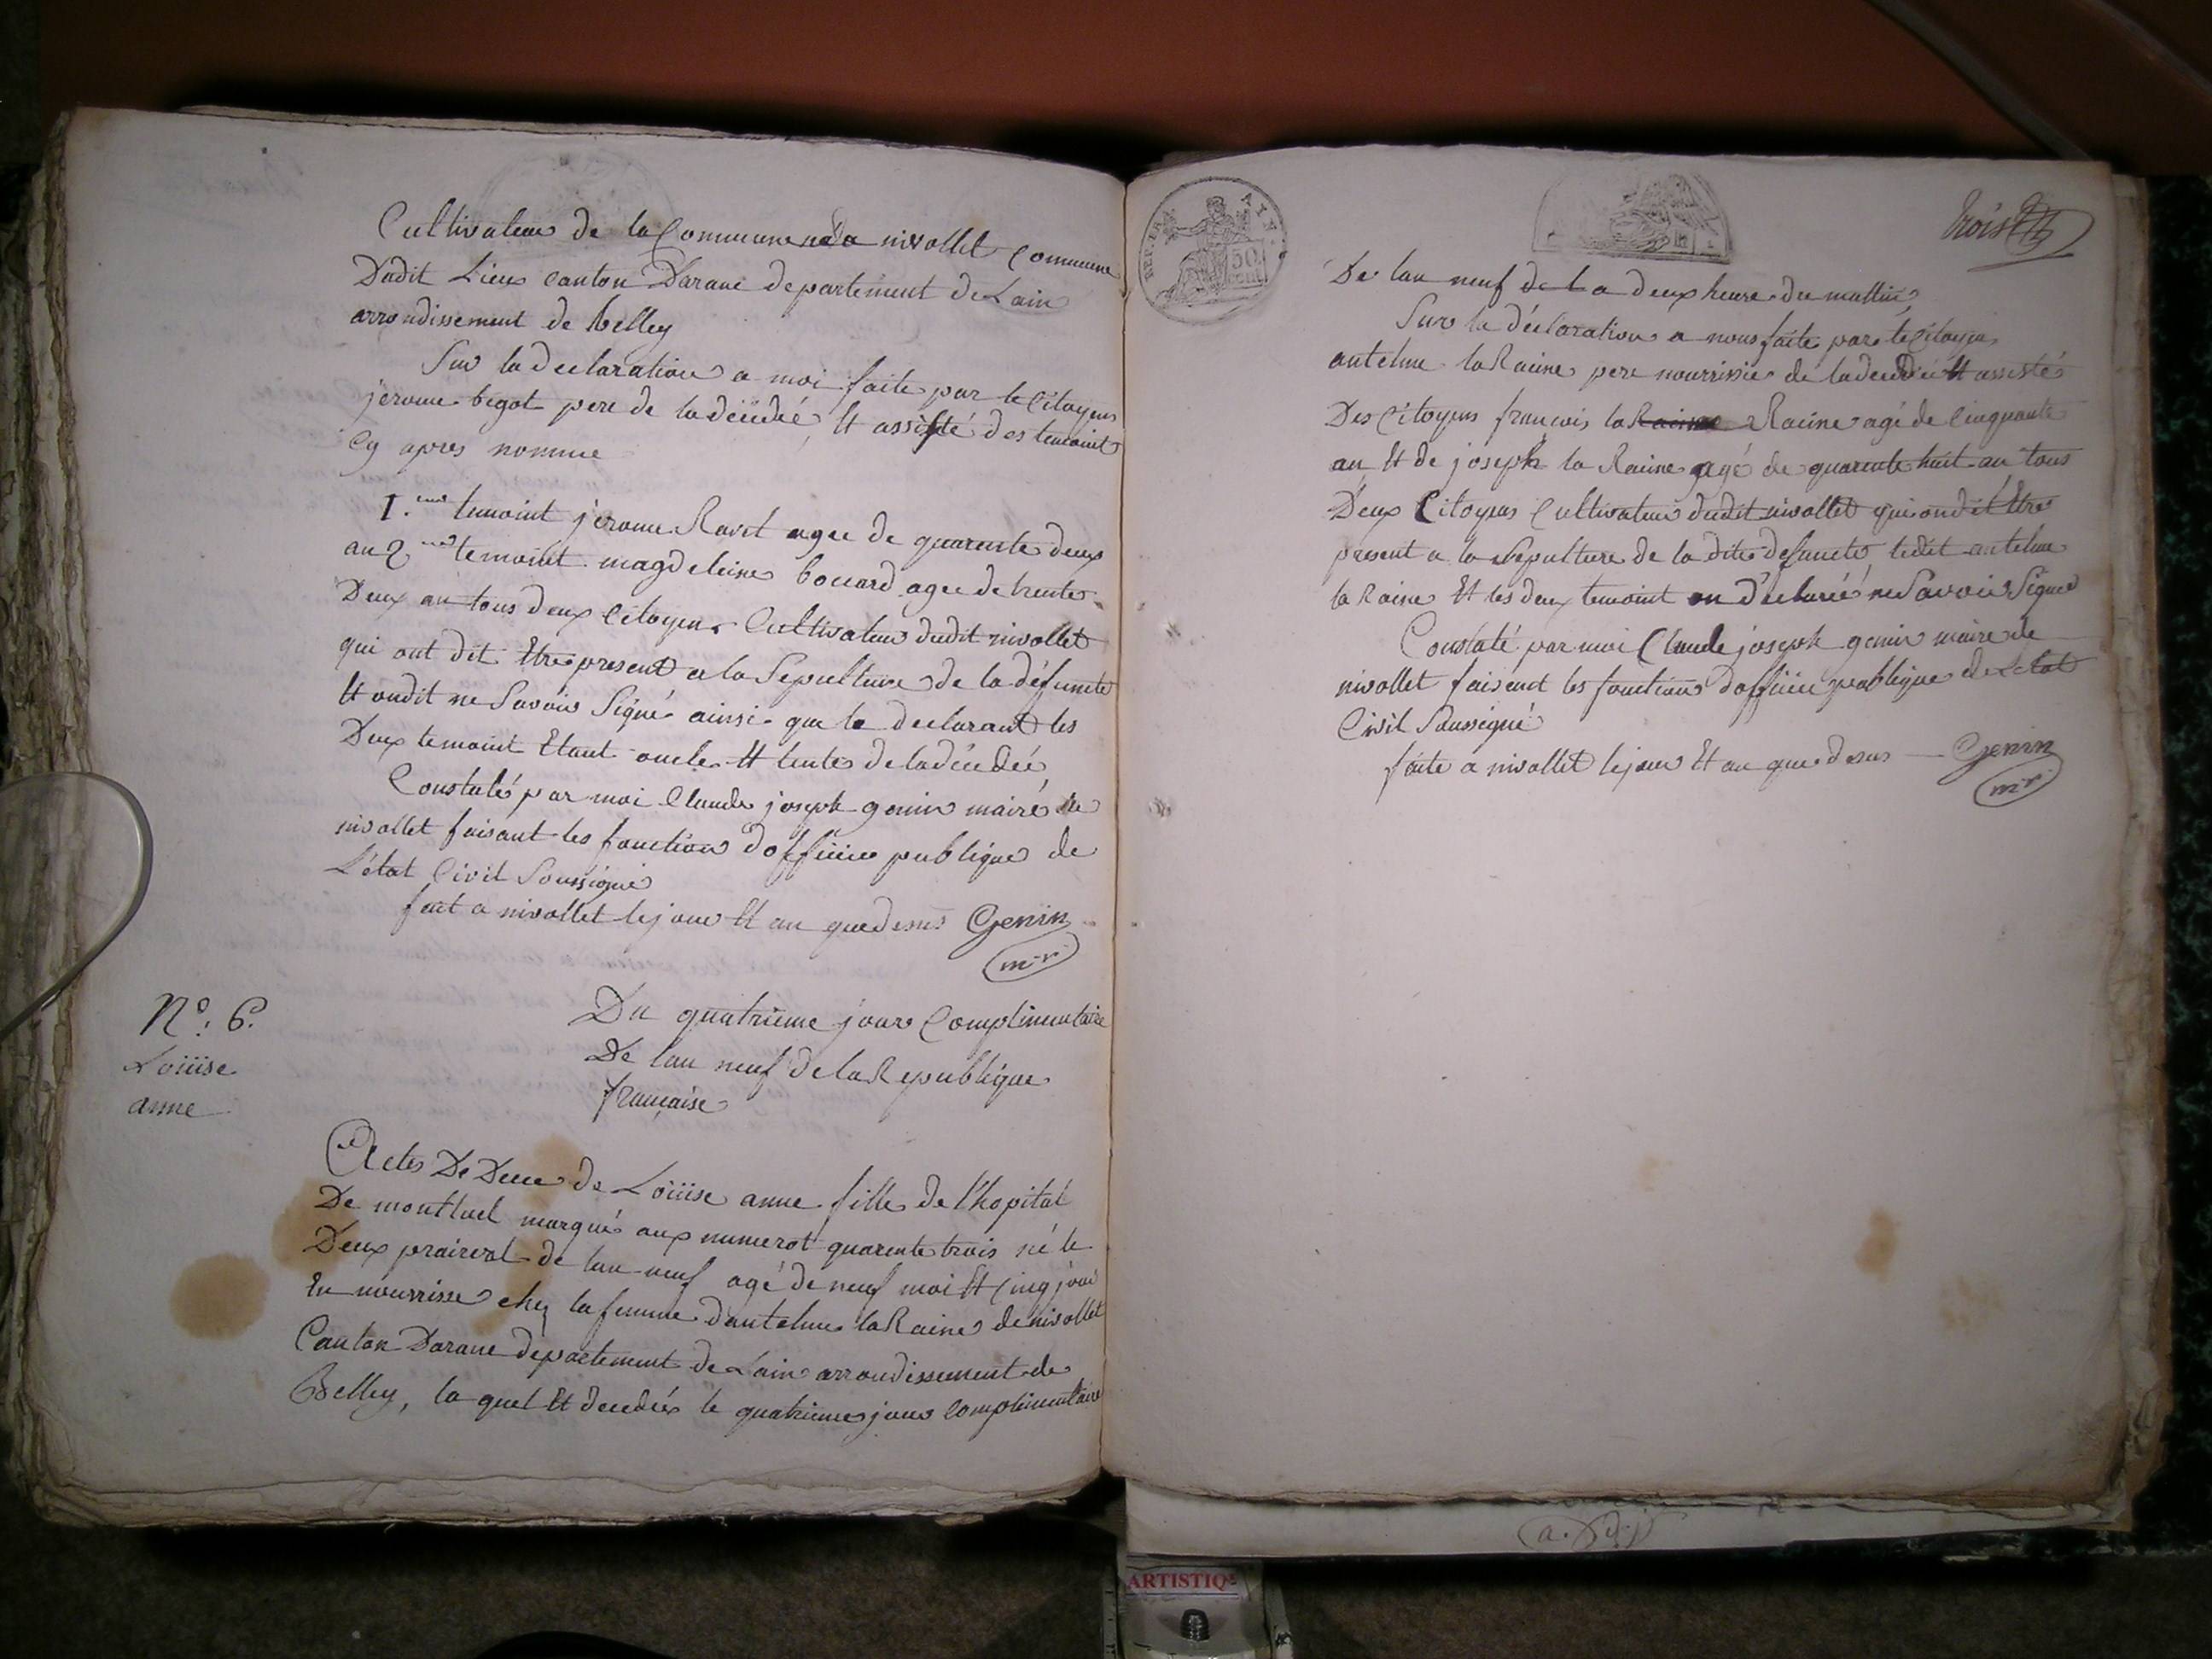 Cultivateur de la Commune nivollet Commune
Dudit Lieux canton Darane departement de Lain
arrondissement de belley
Sur la declaration a moi faite par le Citoyen
jerome bigot pere de la déudée Et assisté des temoint
Cy apres nomme
1.em temoint jerome Ravit agee de quarente deux
an 2 me temoint magdeleine bouard agee de trente
Deux an tous deux Citoyens Cultivateur dudit nivollet
qui ont dit Etre present a la Sepulture de la défuncte
Et ondit ne Savoir Signé ainsi que le declarant les
Deux temoint Etant oncle Et tente de la déudée
Constaté par moi Claude joseph genin maire de
nivollet faisant les fonction dofficier publique de
L'état Civil Soussigné
fait a nivollet le jour Et an que desus Genin
m-r
N°. 6.
Loüise
anne
Du quatrieme jour Complimentaire
De lan neuf de la Republique
francaise
Actes De Deces de Loüise anne fille de l'hopital
De montluel marqué aux numerot quarente trois né le
Deux prairial de lan neuf agé de neuf moi Et Cinq jour
En nourrisse chez la femme dantelme la Raine de nivollet
Canton Darane departement de Lain arrondissement de
Belley, la quel Et decedéz le quatrieme jour complimentaire
REP. FRA.
50
cent.
trois
De lan neuf de la a deux heure du mattin
Sur la déclaration a nous faite par le Citoyen
antelme la Raine pere nourrisier de la deudée Et assisté
Des Citoyens francois la Raine Raine agé de Cinquante
an Et de joseph la Raine agé de quarente huit an tous
Deux Citoyens Cultivateur dudit nivollet qui ondit Etre
present a la Sepulture de la dite defuncte ledit antelme
la Raine Et les deux temoint on déclarée ne Savoir Signé
Constaté par moi Claude joseph genin maire de
nivollet faisant les fonctions dofficier publique de letat
Civil Soussigné
faite a nivollet le jour Et an que desus — Genin
m-r
ARTISTIQ